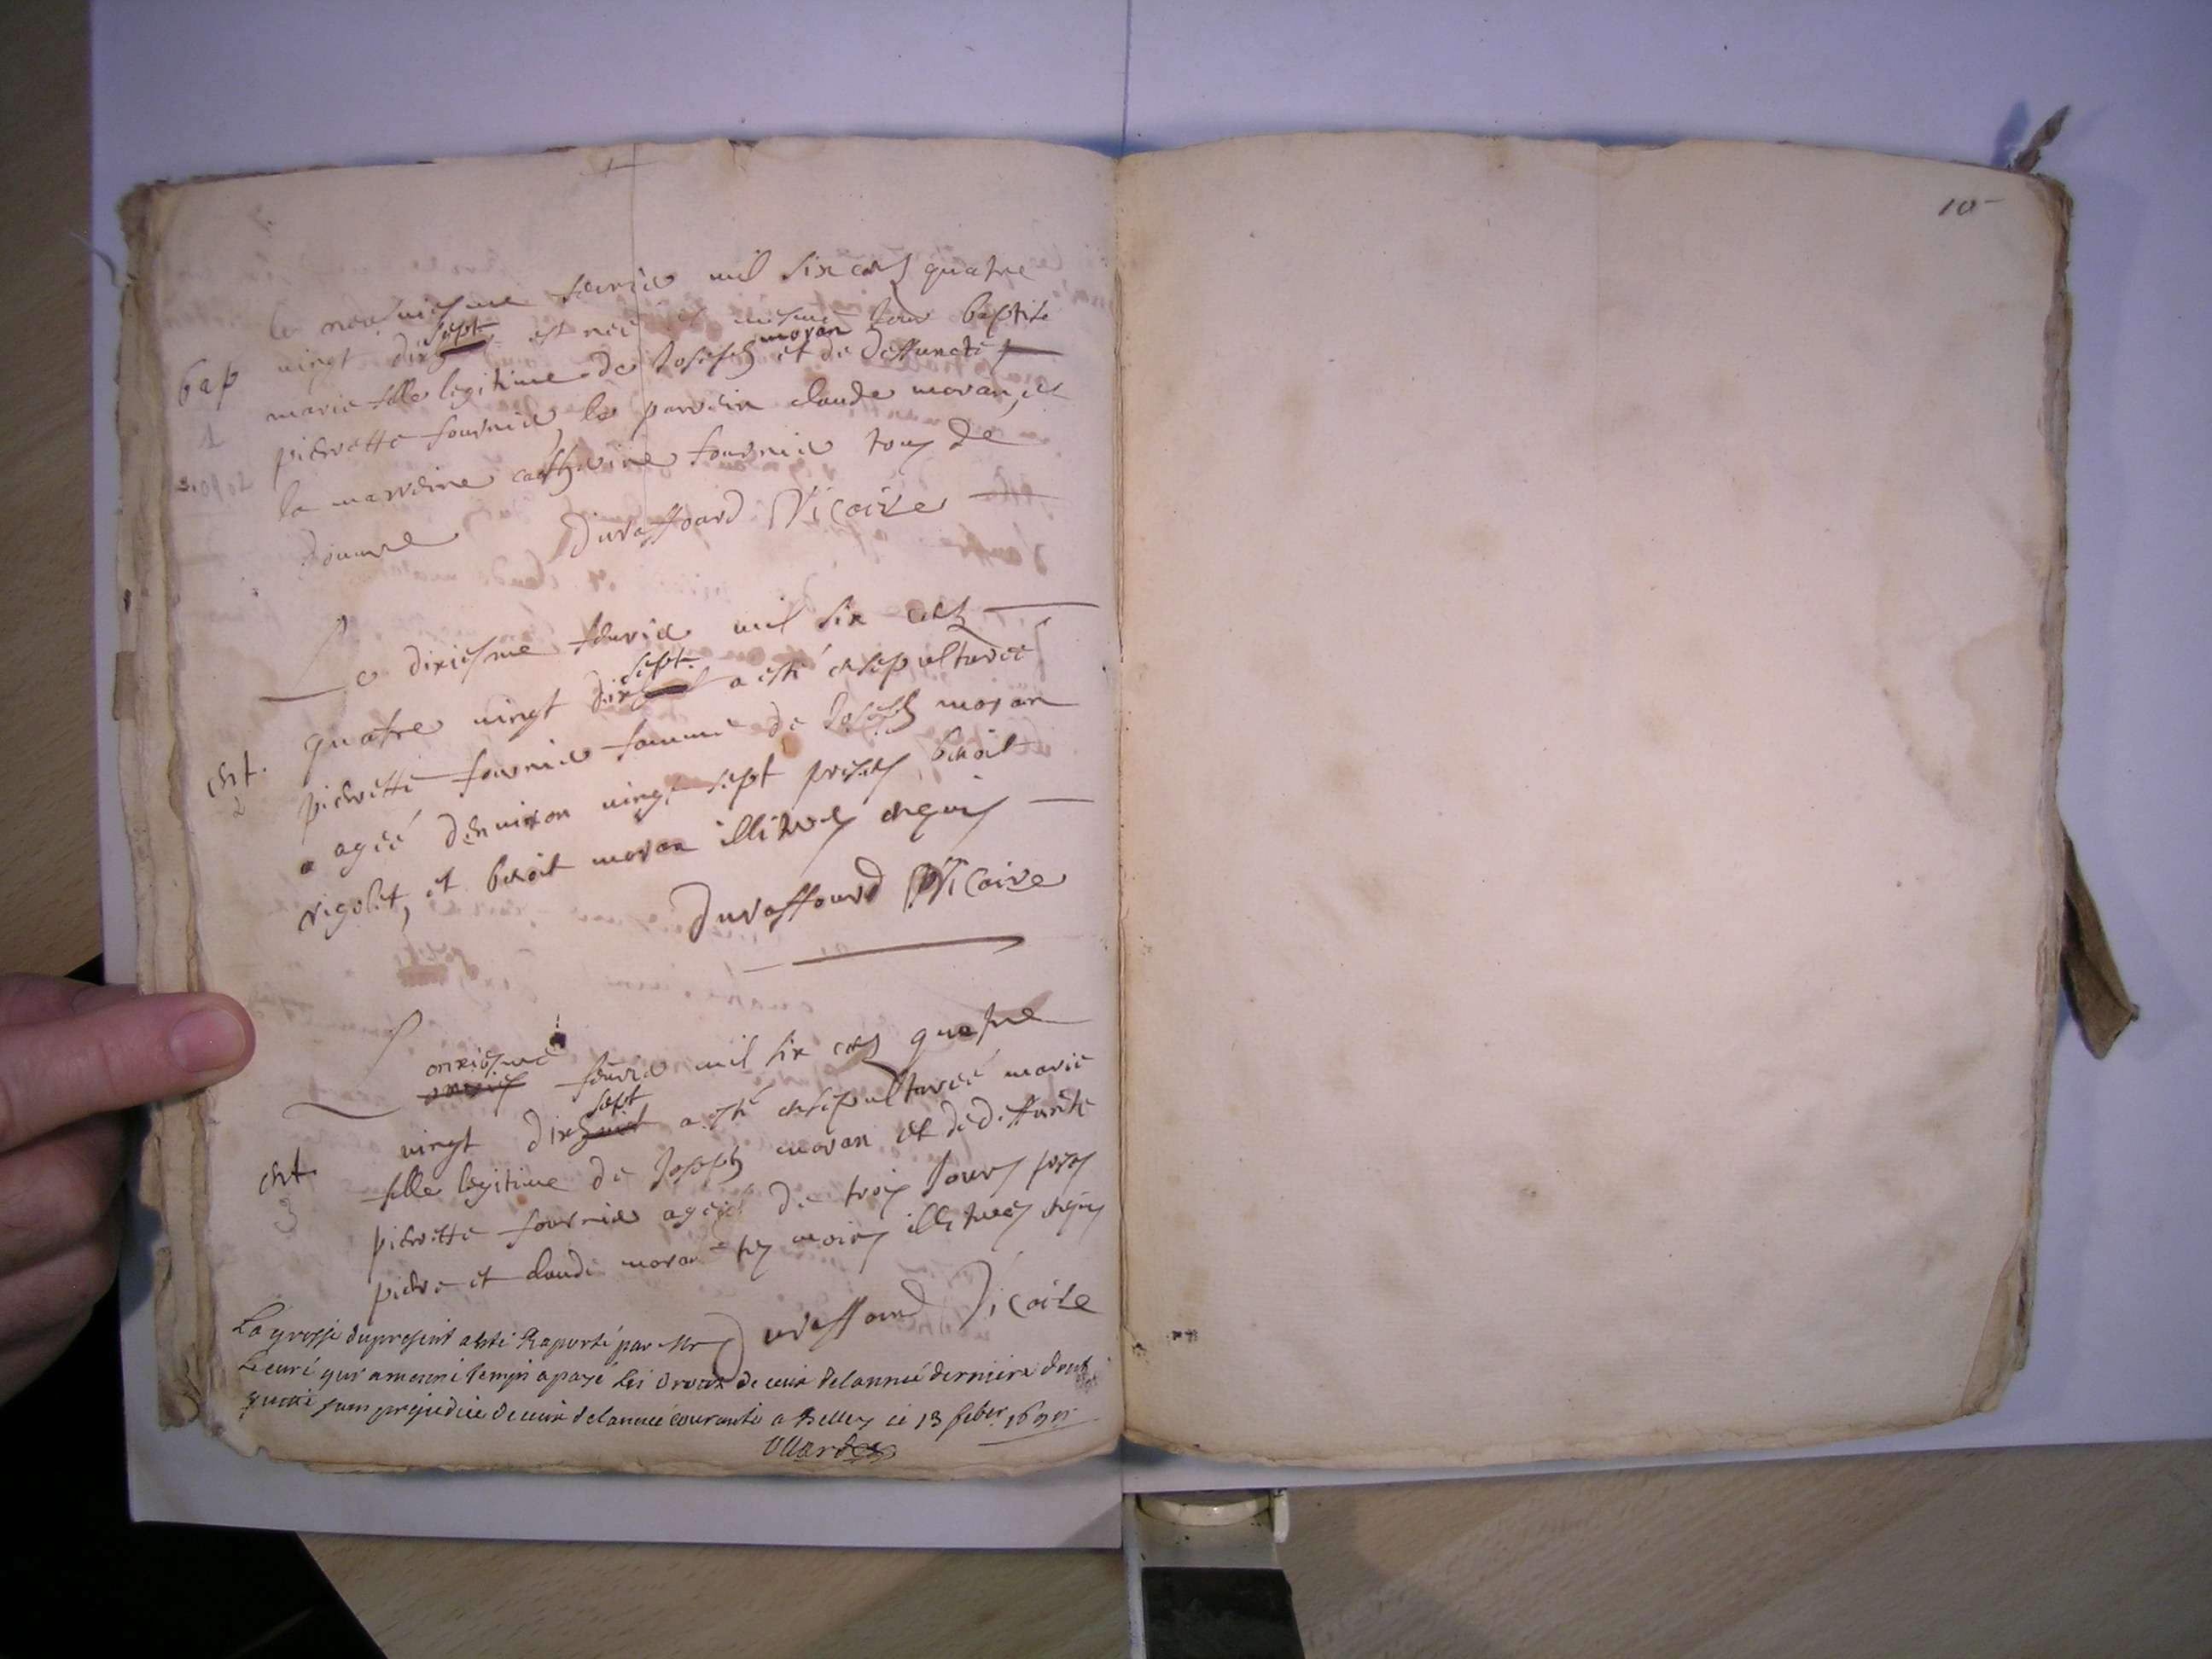 10
le neufviesme febvrier mil six cents quatre
vingt dix sept est née et mesme jour baptisé
bap
marie fille legitime de Joseph moran et de deffuncte
1
pierrette fournier, le parrein claude moran, et
la marreine catherine fournier tous de
Duraffourd Vicaire
Le dixiesme febvrier mil six cents
quatre vingt dix sept a esté ensepulturée
ent.
2
pierrette fournier femme de Joseph moran
agée denviron vingt sept presents, benoit
rigolet, et benoit moran illitres enquis
Duraffourd Vicaire
Le onziesme febvrier mil six cents quatre
vingt dix sept a esté ensepulturée marie
ent
3
fille legitime de Joseph moran et de deffuncte
pierrette fournier agée de trois jours pnts
pierre et claude moran tesmoins illitres enquis
Duraffourd Vicaire
La grosse du present a esté Raporté par Mr
Le curé qui a mesme temps a payé les droits de ceux de lannée derniere dont
quitté sans prejudice de ceux de lannée courante a Belley ce 13 feber